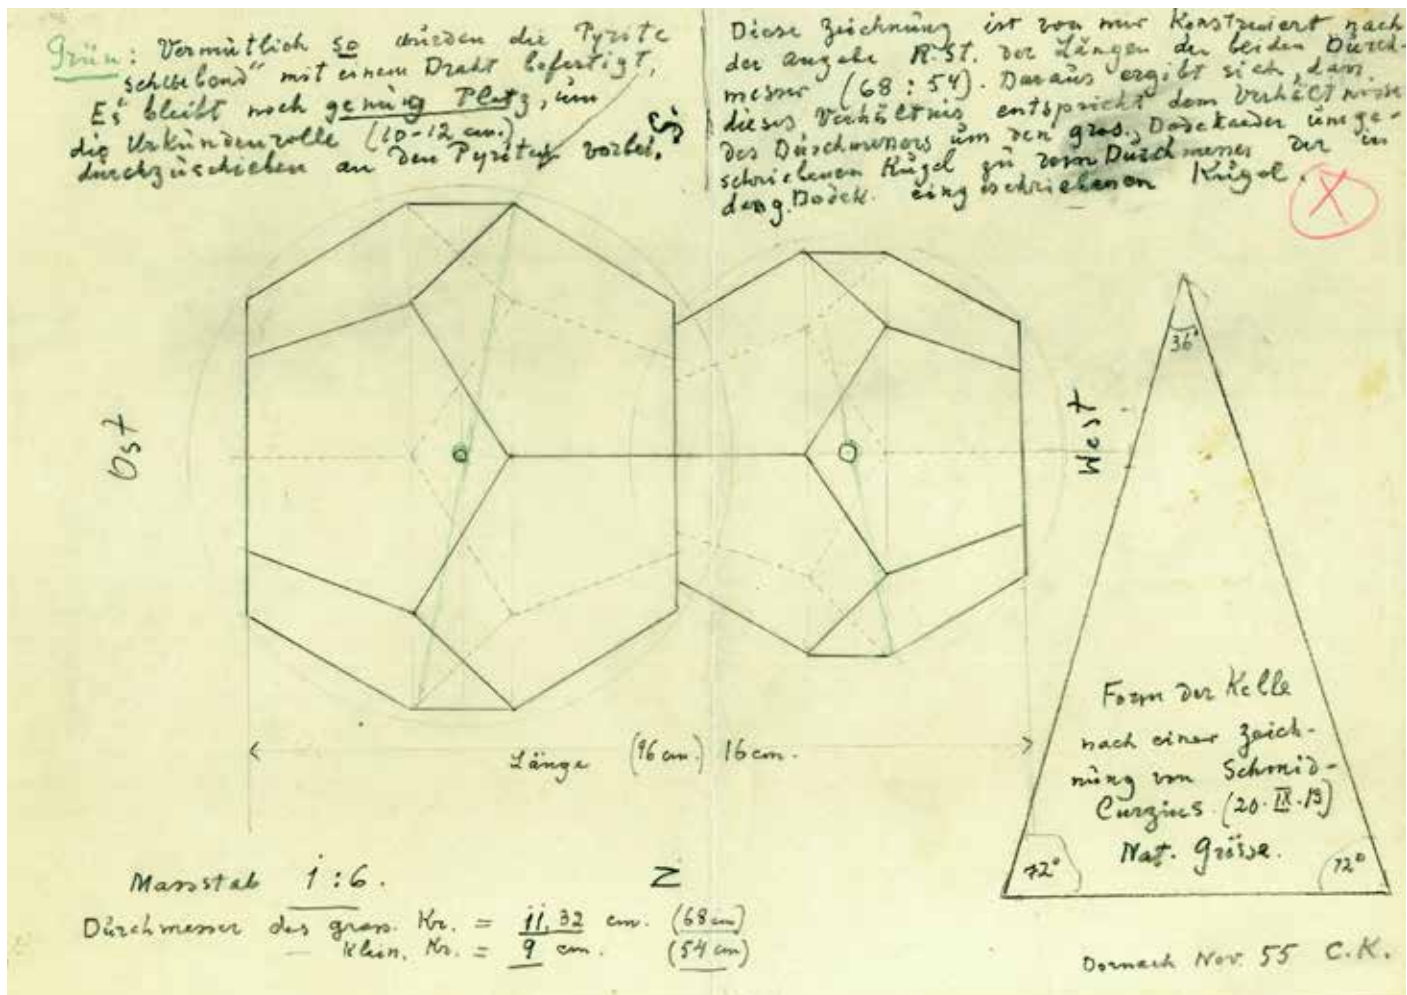 Grün: Vermutlich so würden die Pyrite
schwebend" mit einem Draht befestigt,
Es bleibt noch genüg Platz, um
die Urkundenrolle (10-12 cm.)
durchzuschieben an den Pyriten vorbei.
Diese Zeichnung ist von mir Konstruiert nach
der Angabe R.St. der Längen der beiden Durch-
messer (68 : 54). Daraus ergibt sich, dass
dieses Verhältnis entspricht dem Verhältnisse
des Durchmessers um den gros. Dodekaeder umge-
schriebenen Kugel zu dem Durchmesser der in
den g. Dodek. eingeschriebenen Kugel.
X
S.
Ost
West
36°
Länge (96 cm.) 16 cm.
Form der Kelle
nach einer Zeich-
nung von Schmid-
Curzius (20. IX. 13)
Nat. Grösse.
72°
72°
Massstab 1:6.
Z
Durchmesser des gross. Kr. = 11,32 cm. (68 cm)
— Klein. Kr. = 9 cm. (54 cm)
Dornach Nov. 55 C.K.